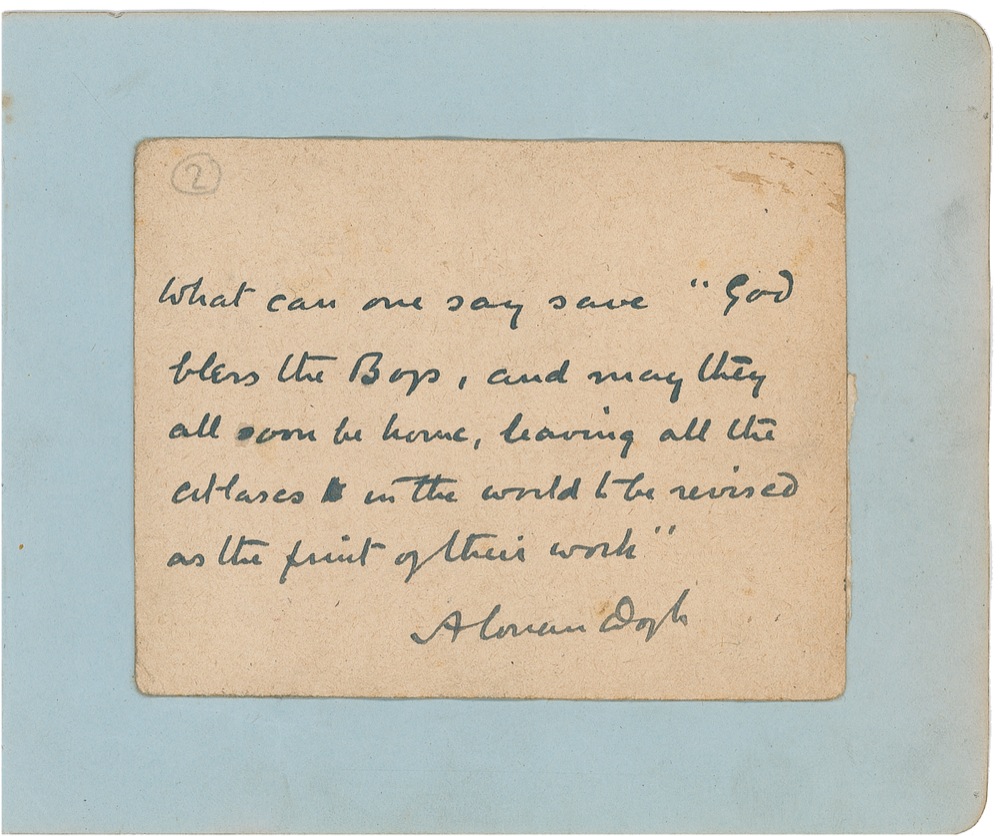 2
What can one say save "God
bless the Boys, and may they
all soon be home, leaving all the
atlases in the world to be revised
as the fruit of their work"
A Conan Doyle